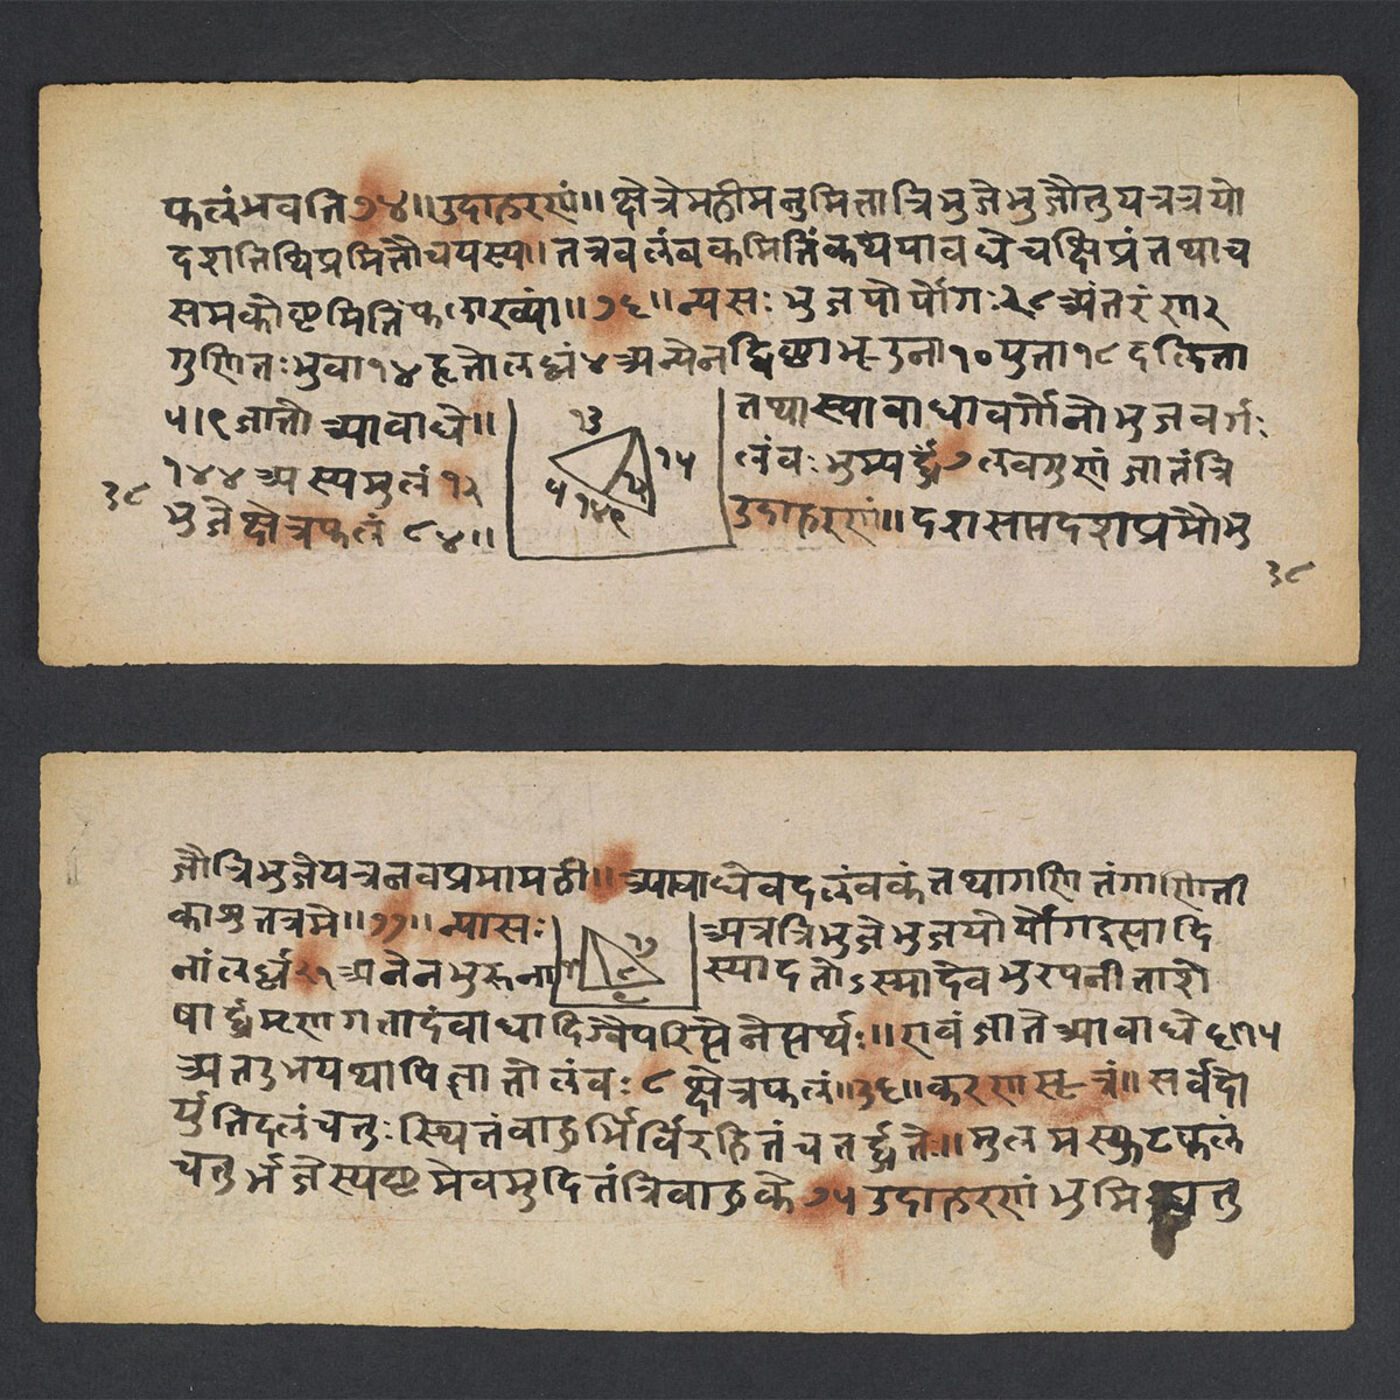 फलं भवति ७४॥ उदाहरणं॥ क्षेत्रे मही मनुमिता त्रिभुजे भुजौ तु यत्र त्रयो
दशतिथिप्रमितौ च यस्य। तत्रावलंबकमितिं कथयावबाधे च क्षिप्रं तथा च
समकोष्टमितिं फलाख्यां॥ ७६॥ न्यसः भुजयोर्योगः २८ अंतरं २
गुणितः भुवा १४ हृतो लब्धं ४ अन्येन द्विष्टा भू उना १० युता १८ दलिता
५।९ जातो आवाधे॥
तथा स्वाबाधावर्गोनो भुजवर्गः
१४४ अस्य मुलं १२
लंवः भुम्यर्द्धं ७ लंवगुणं जातं त्रि
भुजे क्षेत्रफलं ८४॥
१३
१५
५
१४
९
उदाहरणं॥ दशसप्तदशप्रमौ भु
३८
३८
जौ त्रिभुजे यत्र नवप्रमा मही॥ आवाधे वद लंवकं तथा गणितं गाणिती
काशु तत्र मे॥ ७७॥ न्यासः
१७
९
अत्र त्रिभुजे भुजयोर्योग इत्यादि
ना लब्धं २१ अनेन भुरुना
स्यादतोऽस्मादेव भुरपनीता शे
षार्द्धमृणगतादंवाधा दिग्वैपरित्येनेत्यर्थः॥ एवं जाते आवाधे ६।१५
अत उभयथापि जातो लंवः ८ क्षेत्रफलं॥ ३६॥ करणसूत्रं॥ सर्वदो
र्युतिदलं चतुःस्थितं वाहुभिर्विरहितं च तर्द्धतेः॥ मुलमस्फुटफलं
चतुर्भुजे स्पष्टमेवमुदितं त्रिवाहुके ७५ उदाहरणं भुमि